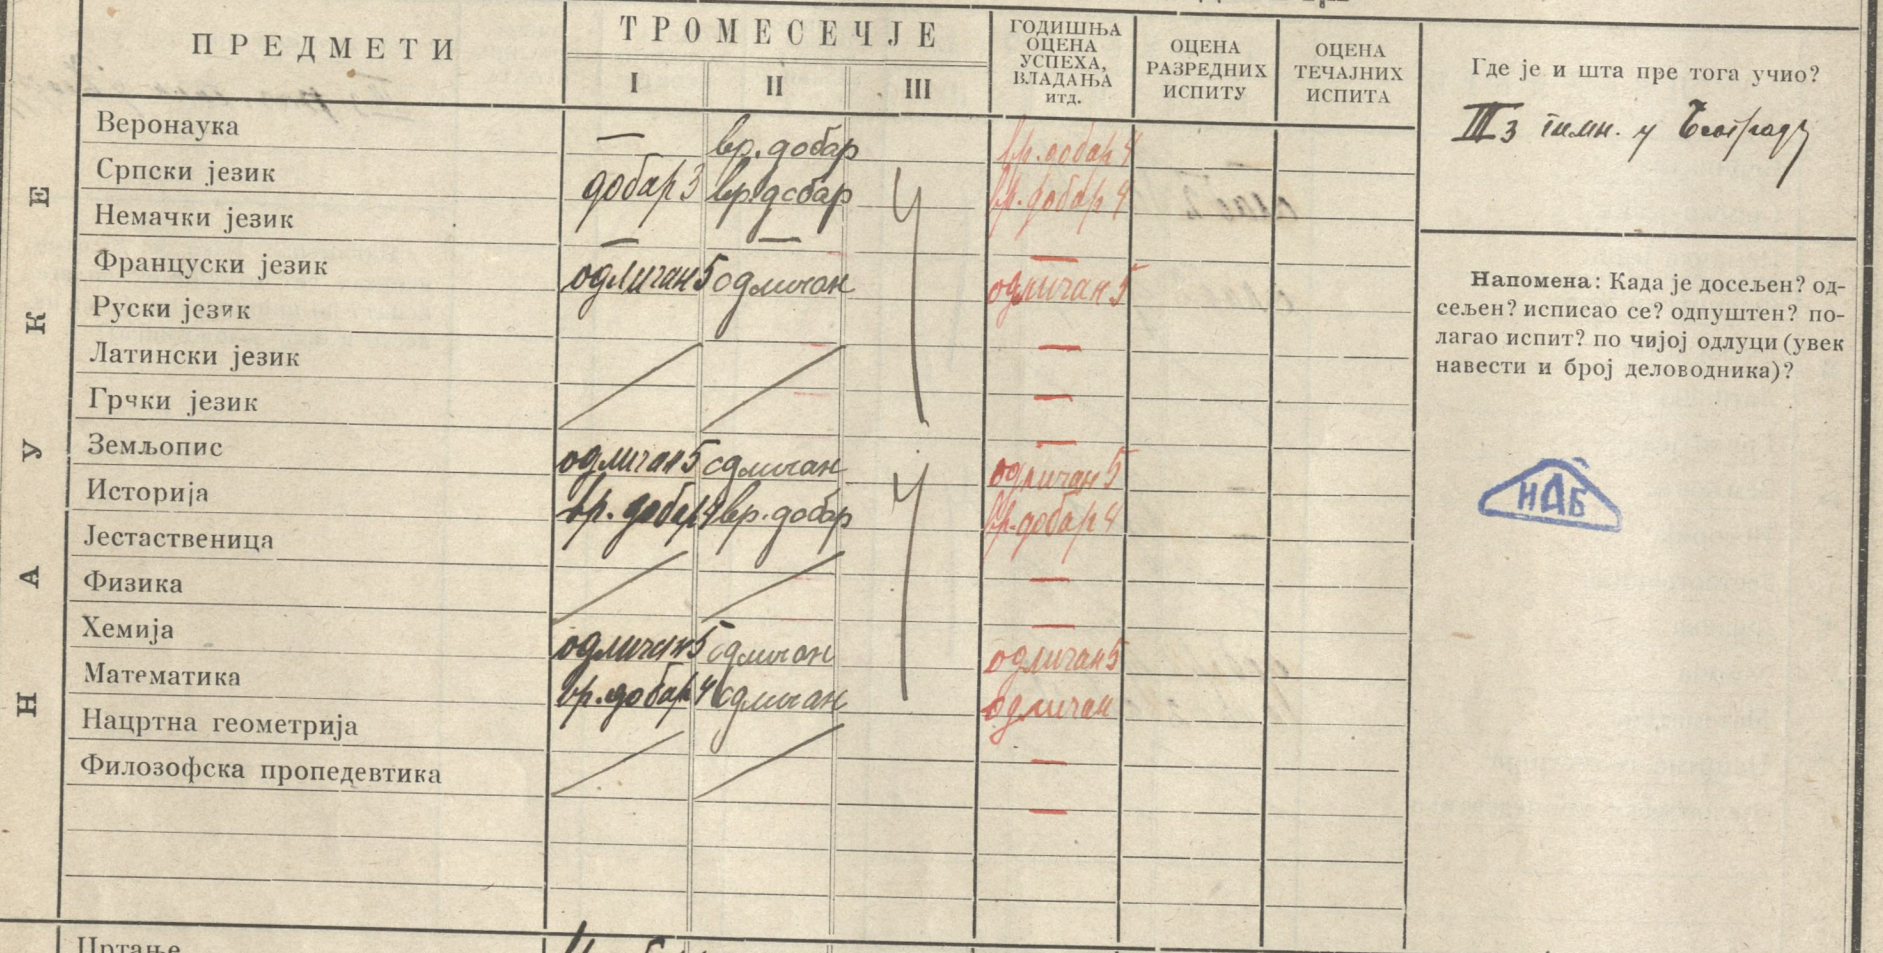 ПРЕДМЕТИ
ТРОМЕСЕЧЈЕ
I II III
ГОДИШЊА
ОЦЕНА
УСПЕХА,
ВЛАДАЊА
итд.
ОЦЕНА
РАЗРЕДНИХ
ИСПИТУ
ОЦЕНА
ТЕЧАЈНИХ
ИСПИТА
НАУКЕ
Веронаука — вр. добар вр. добар 4
Српски језик добар 3 вр. добар вр. добар 4
Немачки језик — — —
Француски језик одличан 5 одличан одличан 5
Руски језик —
Латински језик —
Грчки језик —
Земљопис одличан 5 одличан одличан 5
Историја вр. добар 4 вр. добар вр. добар 4
Јестаственица —
Физика —
Хемија одличан 5 одличан одличан 5
Математика вр. добар 4 одличан одличан
Нацртна геометрија —
Филозофска пропедевтика —
Цртање
Где је и шта пре тога учио?
III з гимн. у Београду
Напомена: Када је досељен? од-
сељен? исписао се? одпуштен? по-
лагао испит? по чијој одлуци (увек
навести и број деловодника)?
ИАБ